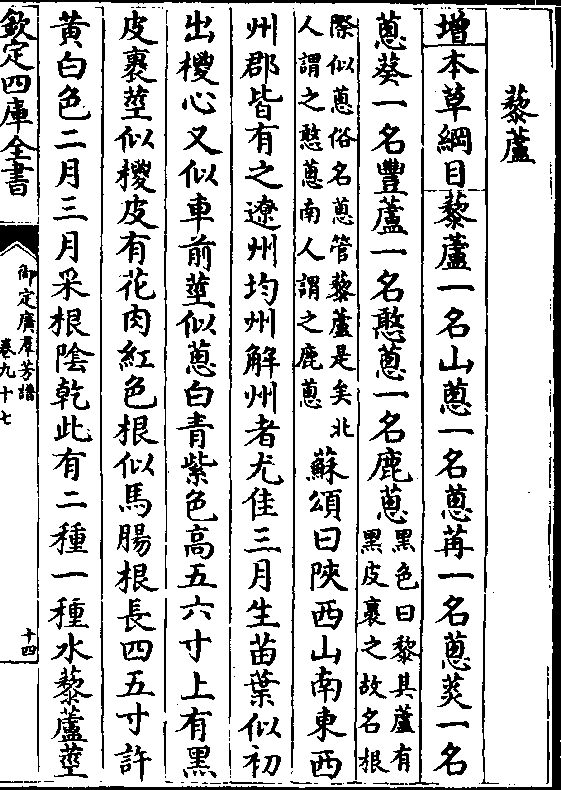 藜蘆
增本草綱目藜蘆一名山蔥一名蔥苒一名蔥菼一名
蔥葵一名豐蘆一名憨蔥一名鹿蔥黑色曰黎其蘆有
黑皮裹之故名根
際似蔥俗名蔥管藜蘆是矣北
人謂之憨蔥南人謂之鹿蔥
蘇頌曰陜西山南東西
州郡皆有之遼州均州解州者尤佳三月生苗葉似初
出椶心又似車前莖似蔥白青紫色高五六寸上有黑
皮裹莖似椶皮有花肉紅色根似馬腸根長四五寸許
黃白色二月三月采根陰乾此有二種一種水藜蘆莖
欽定四庫全書
御定廣羣芳譜
卷九十七
十四